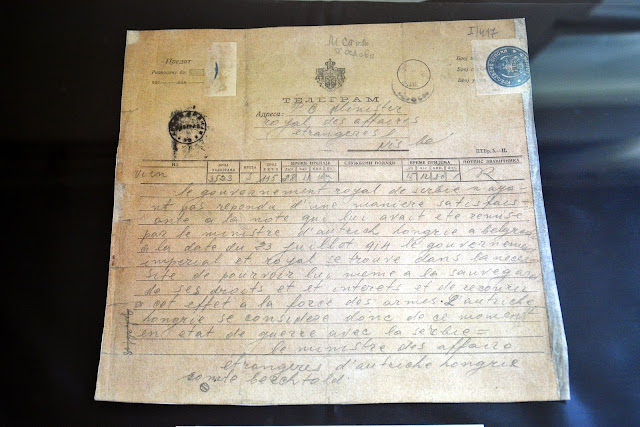 I/417
М сто
Послово
Предат
ТЕЛЕГРАМ
Адреса:
P B Minister
royal des affaires
etrangeres
Nis
ПТБр. X-II.
No
ВРЕМЕ ПРЕДАЈЕ
СЛУЖБЕНИ ПОДАЦИ
ВРЕМЕ ПРИЈЕМА
ПОТПИС ЗВАНИЧНИКА
3523
le gouvernement royal de serbie n aya
nt pas repondu d'une maniere satisfais
ante a la note qui lui avait ete remise
par le ministre d'autrich hongrie a belgrad
a la date du 23 juillet 914 le gouvernemen
imperial et royal se trouve dans la neces
site de pourvoir lui meme a la sauvegar
de ses droits et et interets et de recourir
a cet effet a la force des armes. L'autriche
hongrie se considere donc de ce moment
en etat de guerre avec la serbie =
le ministre des affaire
etrangeres d'autriche hongrie
comte berchtold